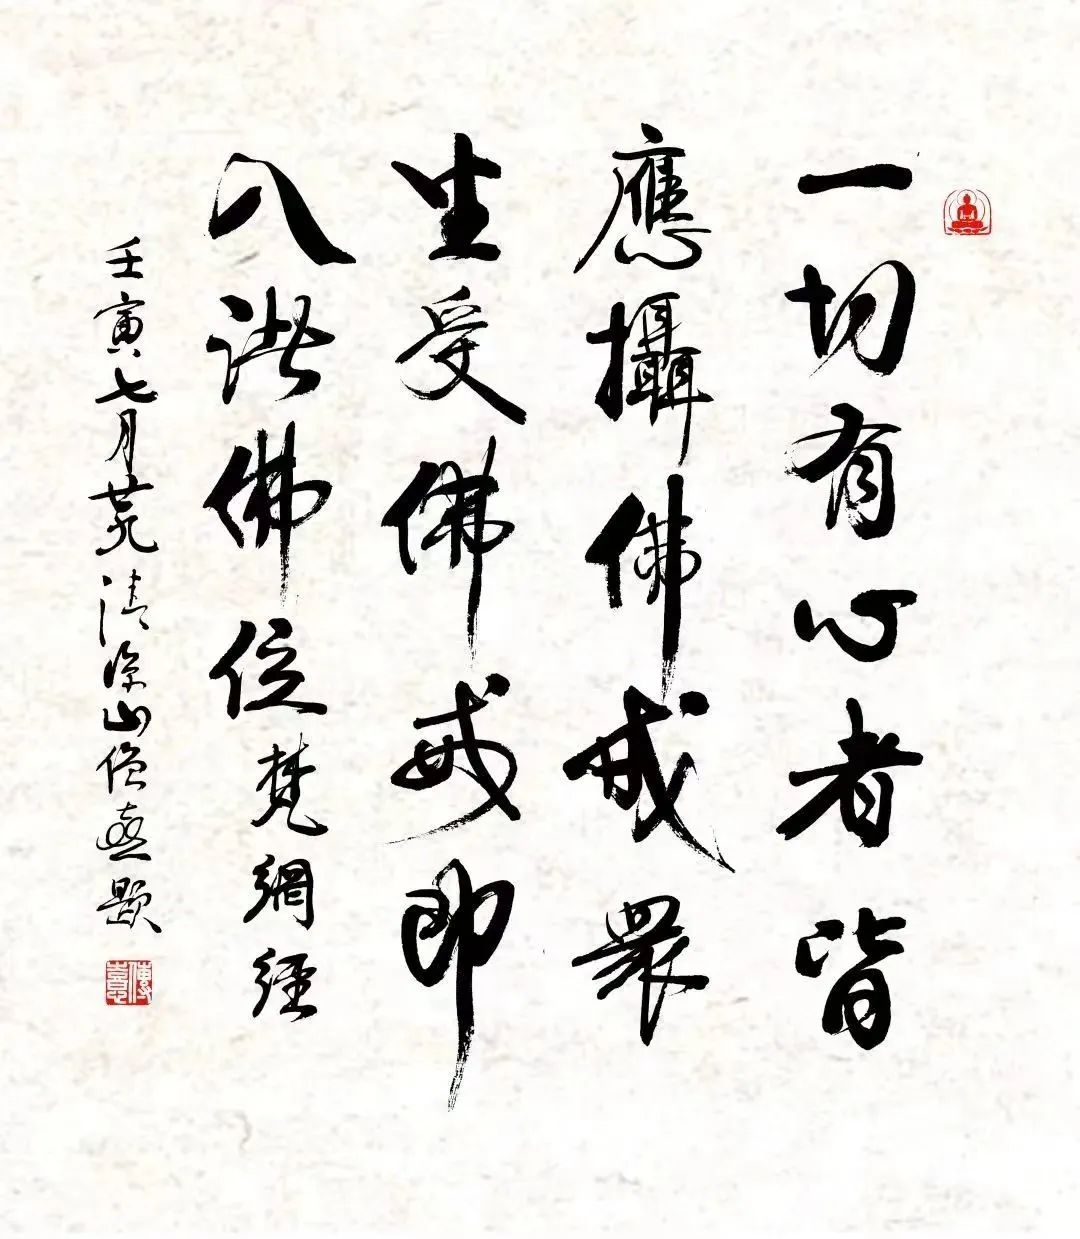 一切有心者皆
應攝佛戒眾
生受佛戒即
入諸佛位梵網經
壬寅七月於清涼山僧憙題
傳憙